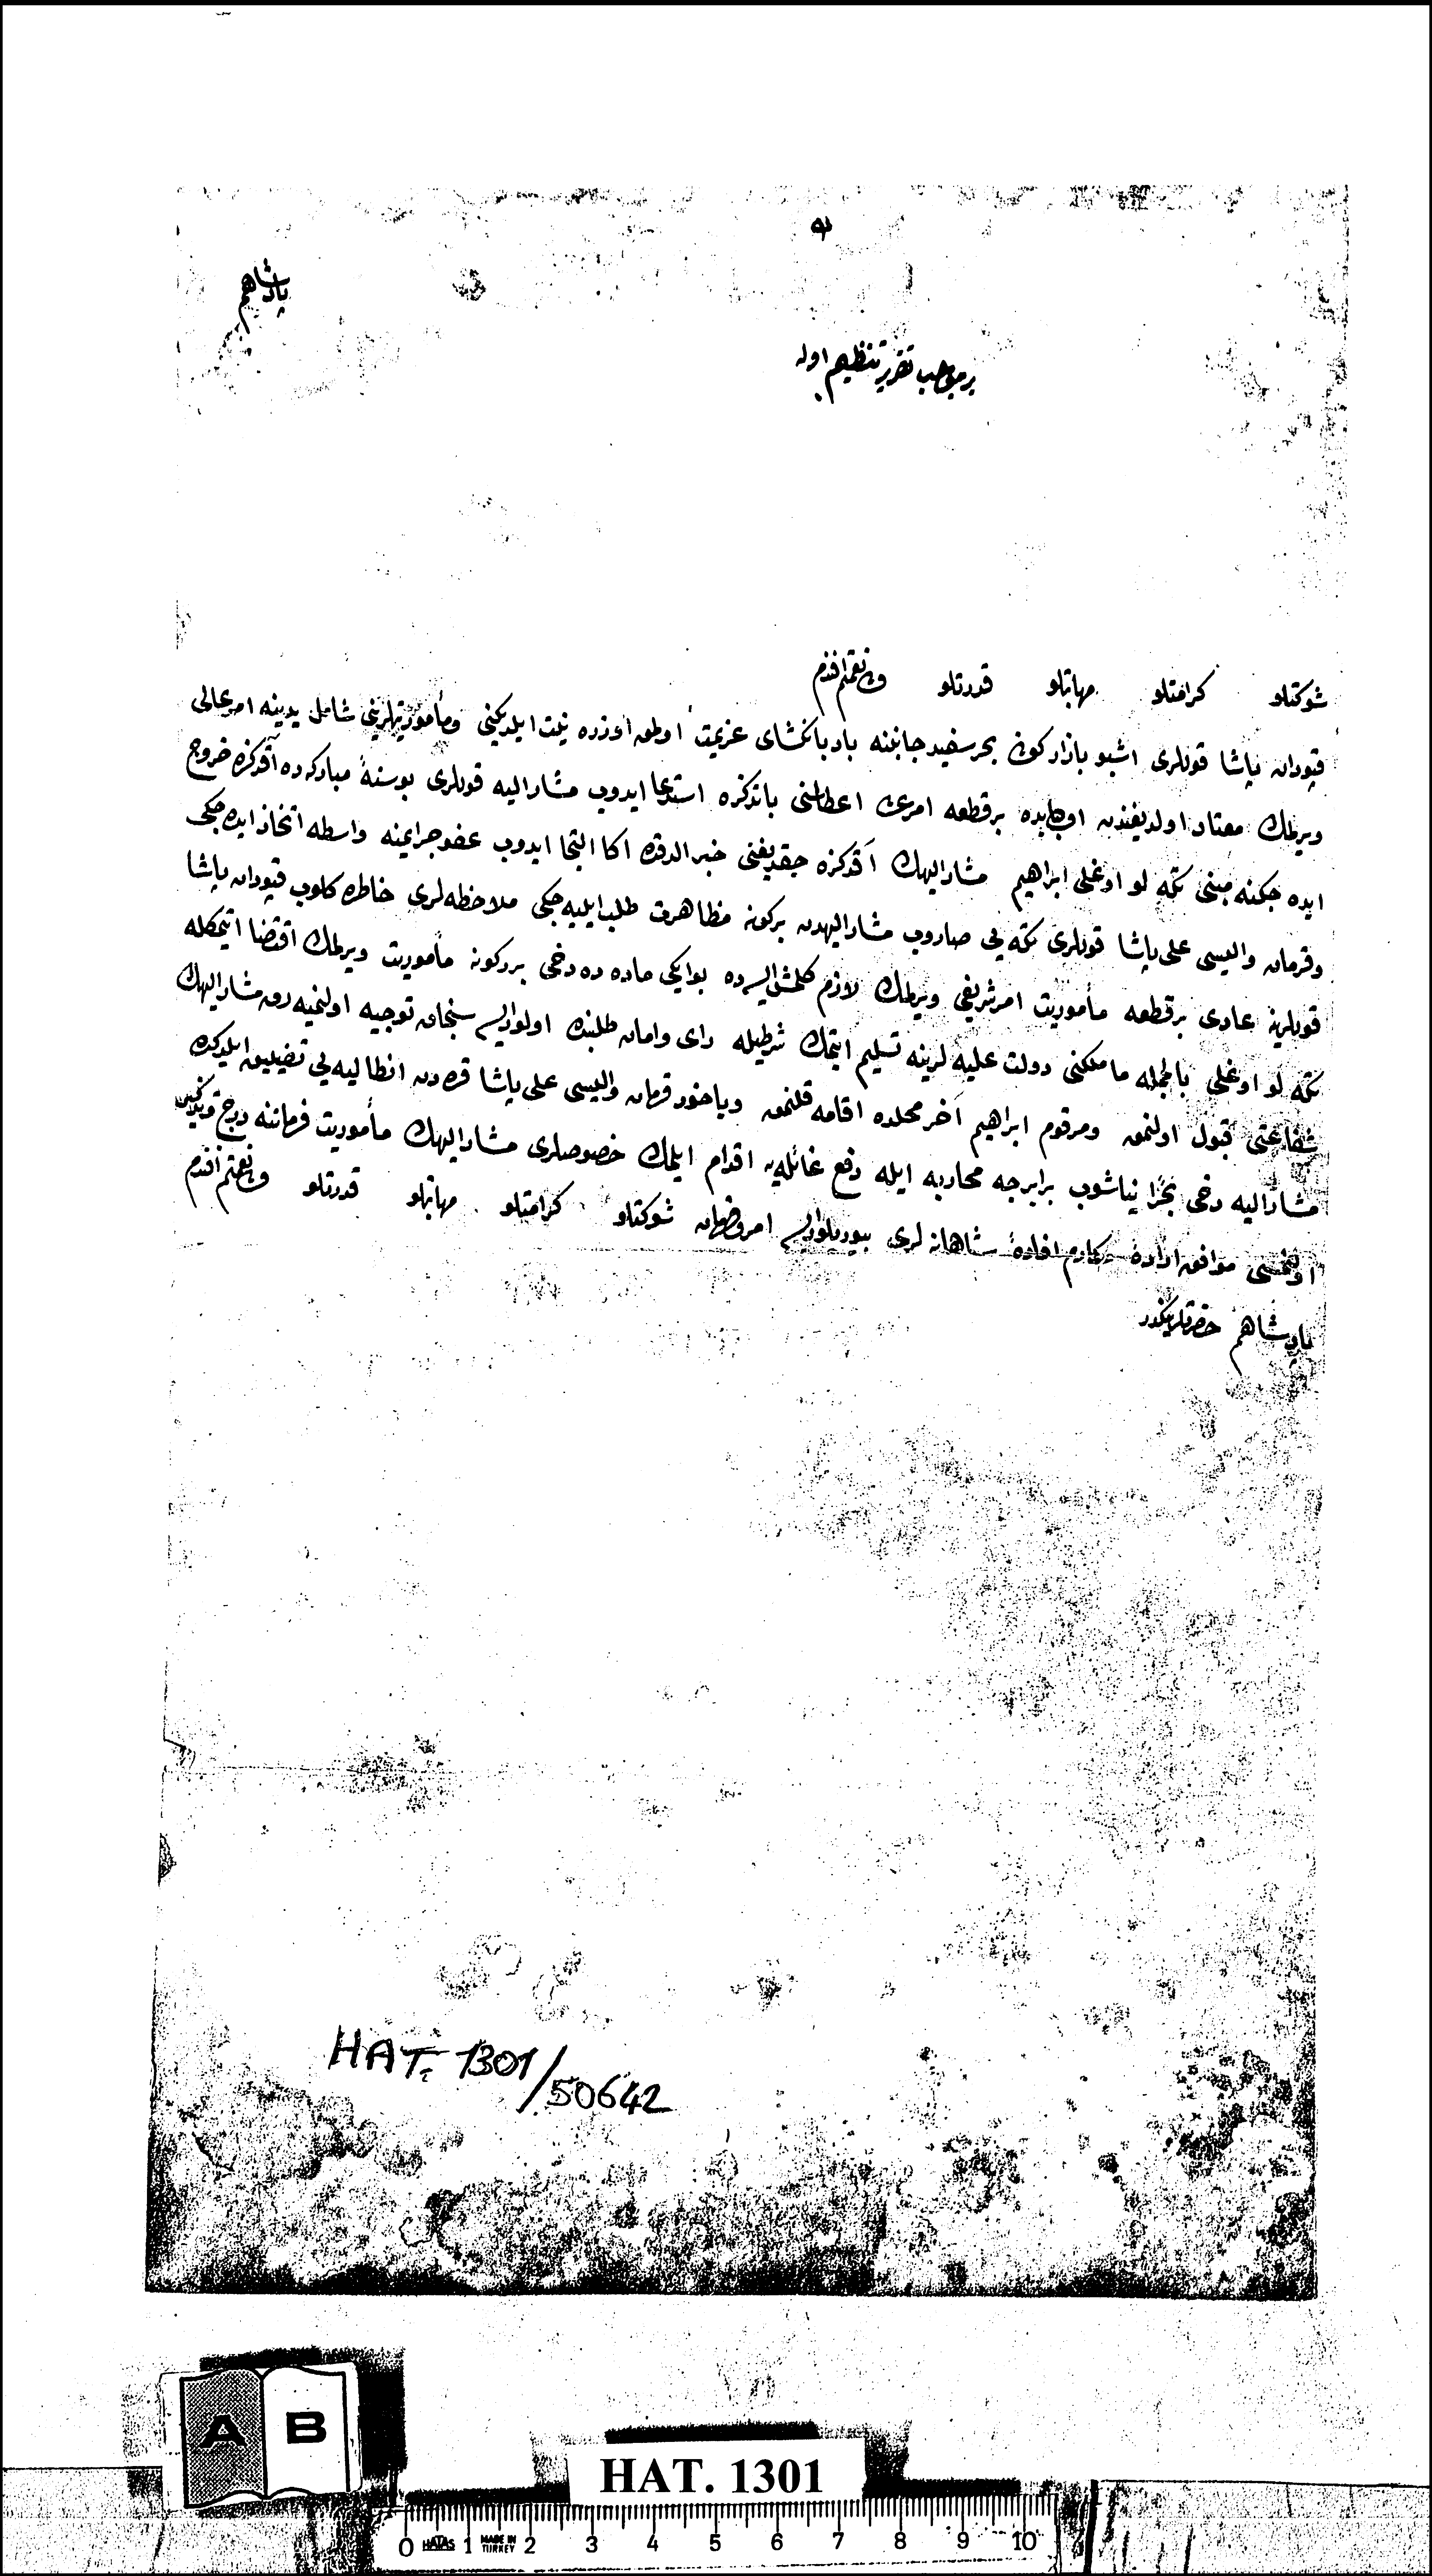 پادشاهم
بر موجب تقریر تنظیم اوله
شوکتلو کرامتلو مهابتلو قدرتلو ولی نعمتم افندم
قپودان پاشا قوللری اشبو بازار کونی بحر سفید جانبنه بادبانکشای عزیمت اولمق اوزره نیت ایلدیکنی ومأموریتلرینی شامل یدینه امر عالی
ویرلمك معتاد اولدیغندن اوبابده بر قطعه امری اعطاسنی باتذکره استدعا ایدوب مشارالیه قوللری بو سنهٔ مبارکه ده آقدکزه خروج
ایده جکنه مبنی تکه لو اوغلی ابراهیم مشارالیهك آقدکزه چیقدیغنی خبر الدقده اکا التجا ایدوب عفو جرایمنه واسطه اتخاذ ایده جکی
وقرمان والیسی علی پاشا قوللری تکه یی صاروب مشارالیهدن بر کونه مظاهرت طلب ایلیه جکی ملاحظه لری خاطره کلوب قپودان پاشا
قوللرینه عادی بر قطعه مأموریت امر شریفی ویرلمك لازم کلمش ایسه ده بو ایکی ماده ده دخی بر درکونه مأموریت ویرلمك اقتضا ایتمکله
تکه لو اوغلی بالجمله ماملکنی دولت علیه لرینه تسلیم ایتمك شرطیله رای وامان طلبنده اولور ایسه سنجاق توجیه اولنمیه رق مشارالیهك
شفاعتی قبول اولنمق ومرقوم ابراهیم آخر محلده اقامه قلنمق ویاخود قرمان والیسی علی پاشا قره دن انطالیه یی تضییق ایلدکده
مشارالیه دخی بحرا یناشوب برابرجه محاربه ایله دفع غائله یه اقدام ایلمك خصوصلری مشارالیهك مأموریت فرماننه درج وتذکیر
اولنمسی موافق ارادهٔ مکارم افادهٔ شاهانه لری بیوریلور ایسه امر وفرمان شوکتلو کرامتلو مهابتلو قدرتلو ولی نعمتم افندم
پادشاهم حضرتلرینکدر
HAT. 1301/50642
A B
HAT. 1301
0 HATAS 1 MADE IN TURKEY 2 3 4 5 6 7 8 9 10